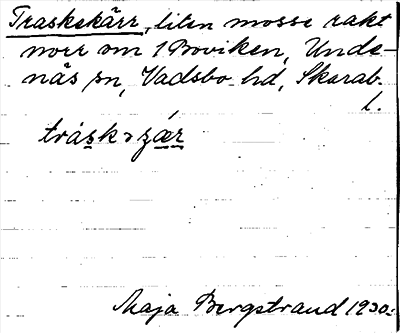 Traskekärr, liten mosse rakt
norr om 1 Boviken, Unde-
näs sn, Vadsbo hd, Skarab.
l.
Maja Bergstrand 1930.